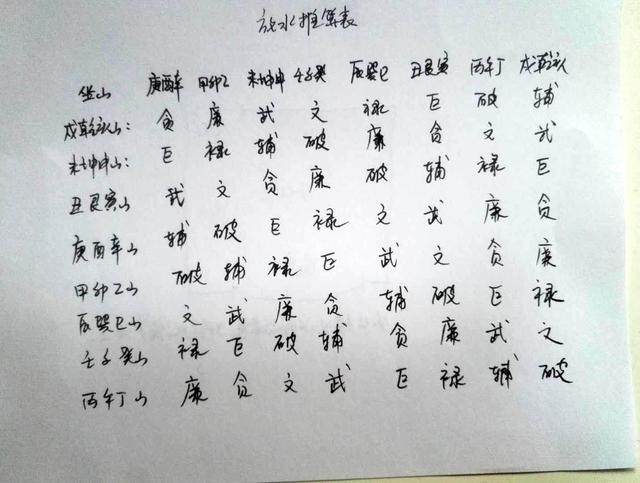 放水推算表
坐山 庚酉辛 甲卯乙 未坤申 壬子癸 辰巽巳 丑艮寅 丙午丁 戌乾亥
戌乾亥山: 贪 廉 武 文 禄 巨 破 辅
未坤申山: 巨 禄 辅 破 廉 贪 文 武
丑艮寅山 武 文 贪 廉 破 辅 禄 巨
庚酉辛山 辅 破 巨 禄 文 武 廉 贪
甲卯乙山 破 辅 禄 巨 武 文 贪 廉
辰巽巳山 文 武 廉 贪 辅 破 巨 禄
壬子癸山 禄 巨 破 辅 贪 廉 武 文
丙午丁山 廉 贪 文 武 巨 禄 辅 破